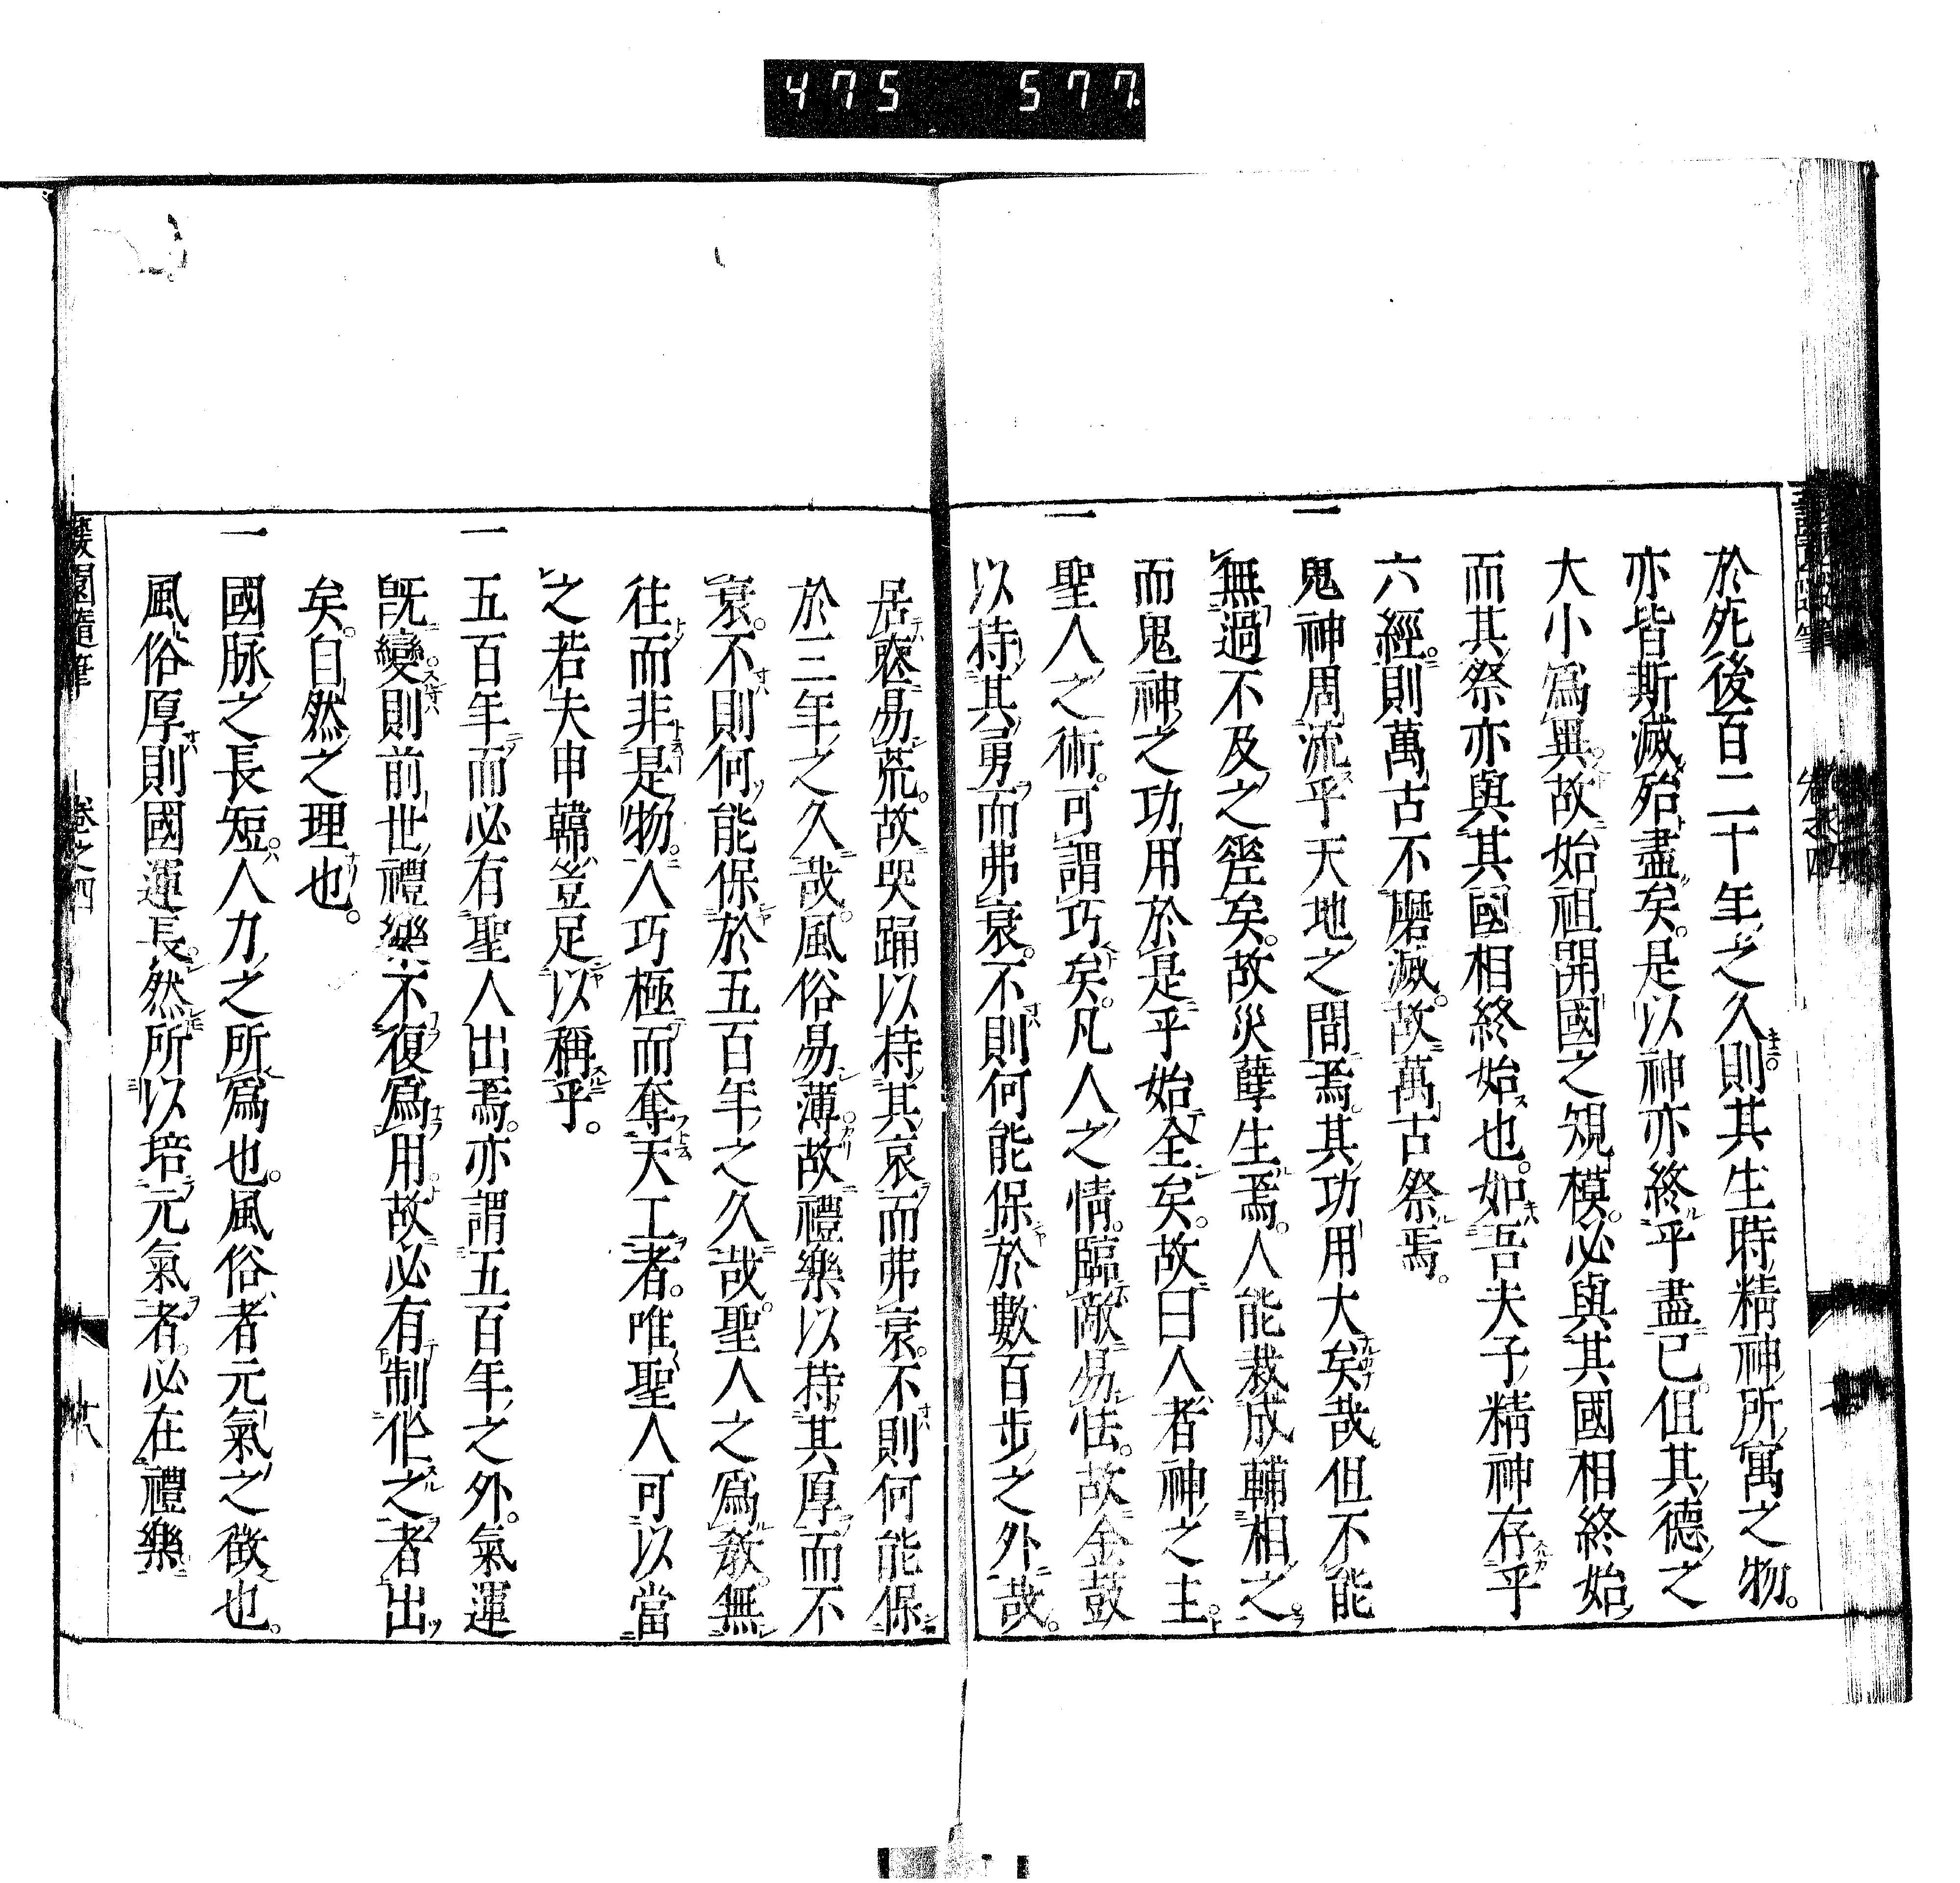 475 577.
於死後百二十年之久則其生時精神所寓之物。
亦皆斯滅殆盡矣。是以神亦終乎盡已。但其德之
大小爲異。故始祖開國之䂓模。必與其國相終始。
而其祭亦與其國相終始也。如吾夫子精神存乎
六經。則萬古不磨滅。故萬古祭焉。
一鬼神周流乎天地之間焉。其功用大矣哉。但不能
無過不及之䇦矣。故災孽生焉。人能裁成輔相之。
而鬼神之功用於是乎始全矣。故曰人者神之主。
一聖人之術。可謂巧矣。凡人之情。臨敵易怯。故金鼓
以持其勇而弗衰。不則何能保於數百步之外哉。
居喪易荒。故哭踊以持其哀而弗衰。不則何能保
於三年之久哉。風俗易薄。故禮樂以持其厚而不
衰。不則何能保於五百年之久哉。聖人之爲教。無
往而非是物。人巧極而奪天工者。唯聖人可以當
之若夫申韓豈足以稱乎。
一五百年而必有聖人出焉。亦謂五百年之外。氣運
既變則前世禮樂不復爲用。故必有制作之者出
矣。自然之理也。
一國脉之長短。人力之所爲也。風俗者元氣之徵也。
風俗厚則國運長。然所以培元氣者。必在禮樂
蘐園隨筆 卷之四 十八